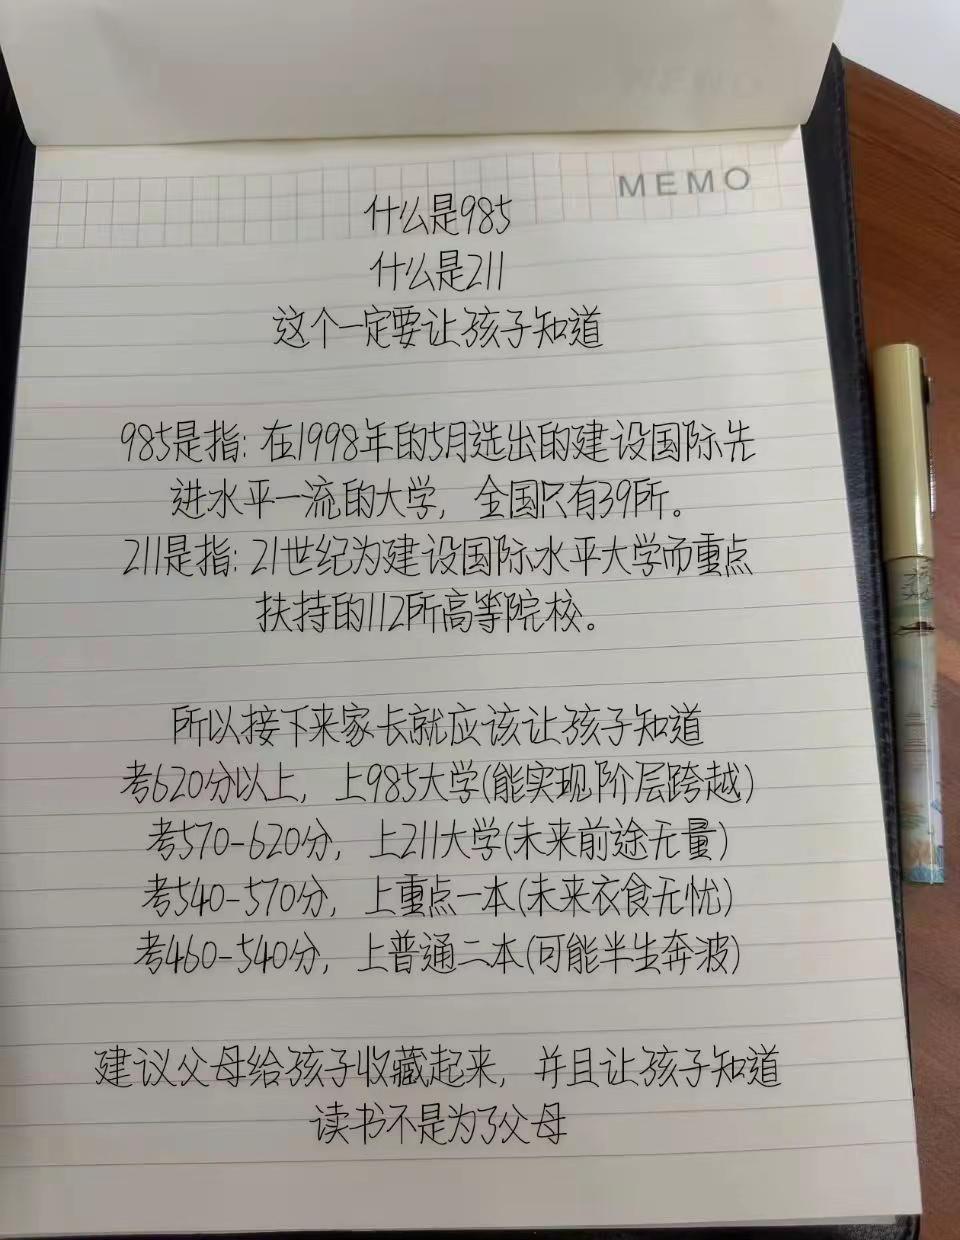 MEMO
什么是985
什么是211
这个一定要让孩子知道
985是指: 在1998年的5月选出的建设国际先
进水平一流的大学, 全国只有39所。
211是指: 21世纪为建设国际水平大学而重点
扶持的112所高等院校。
所以接下来家长就应该让孩子知道
考620分以上, 上985大学(能实现阶层跨越)
考570-620分, 上211大学(未来前途无量)
考540-570分, 上重点一本(未来衣食无忧)
考460-540分, 上普通二本(可能半生奔波)
建议父母给孩子收藏起来, 并且让孩子知道
读书不是为了父母